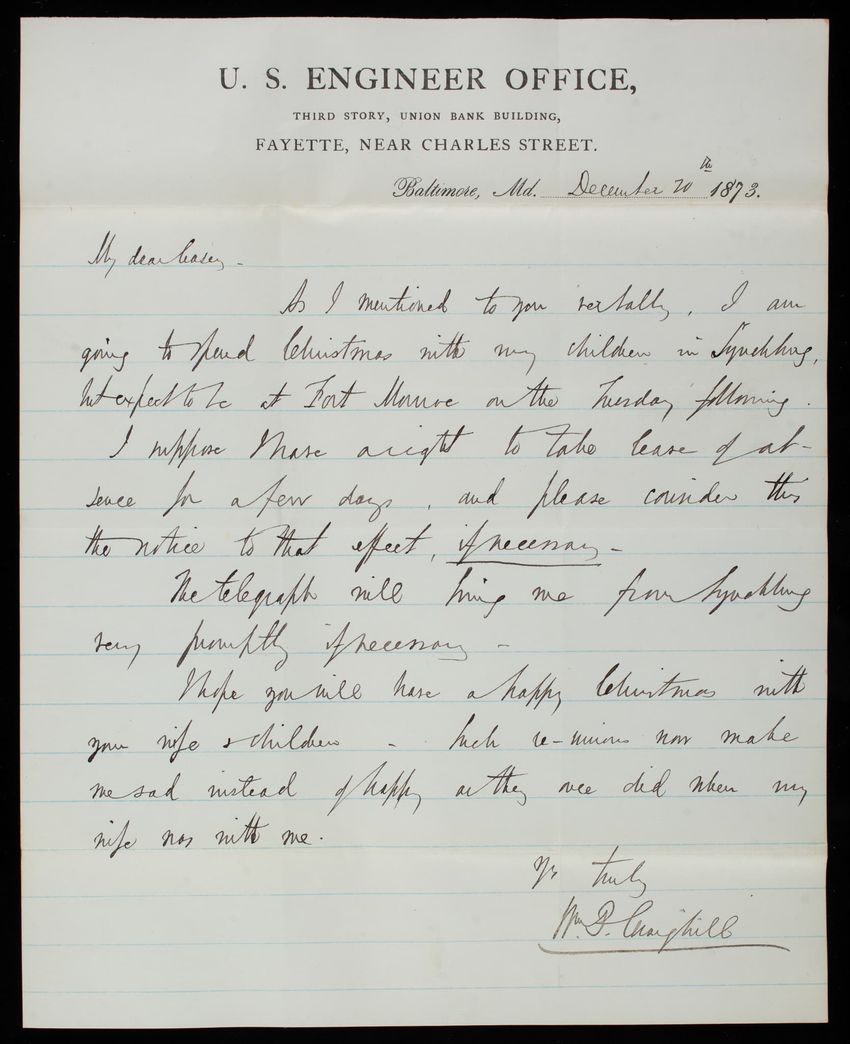 U. S. ENGINEER OFFICE,
THIRD STORY, UNION BANK BUILDING,
FAYETTE, NEAR CHARLES STREET.
Baltimore, Md. December 20th 1873.
My dear Casey -
As I mentioned to you verbally, I am
going to spend Christmas with my children in Lynchburg,
but expect to be at Fort Monroe on the Tuesday following.
I suppose I have a right to take leave of ab-
sence for a few days, and please consider this
the notice to that effect, if necessary -
The telegraph will bring me from Lynchburg
very promptly if necessary -
I hope you will have a happy Christmas with
your wife & children - Such re-unions now make
me sad instead of happy as they once did when my
wife was with me.
Yrs truly
Wm. P. Craighill